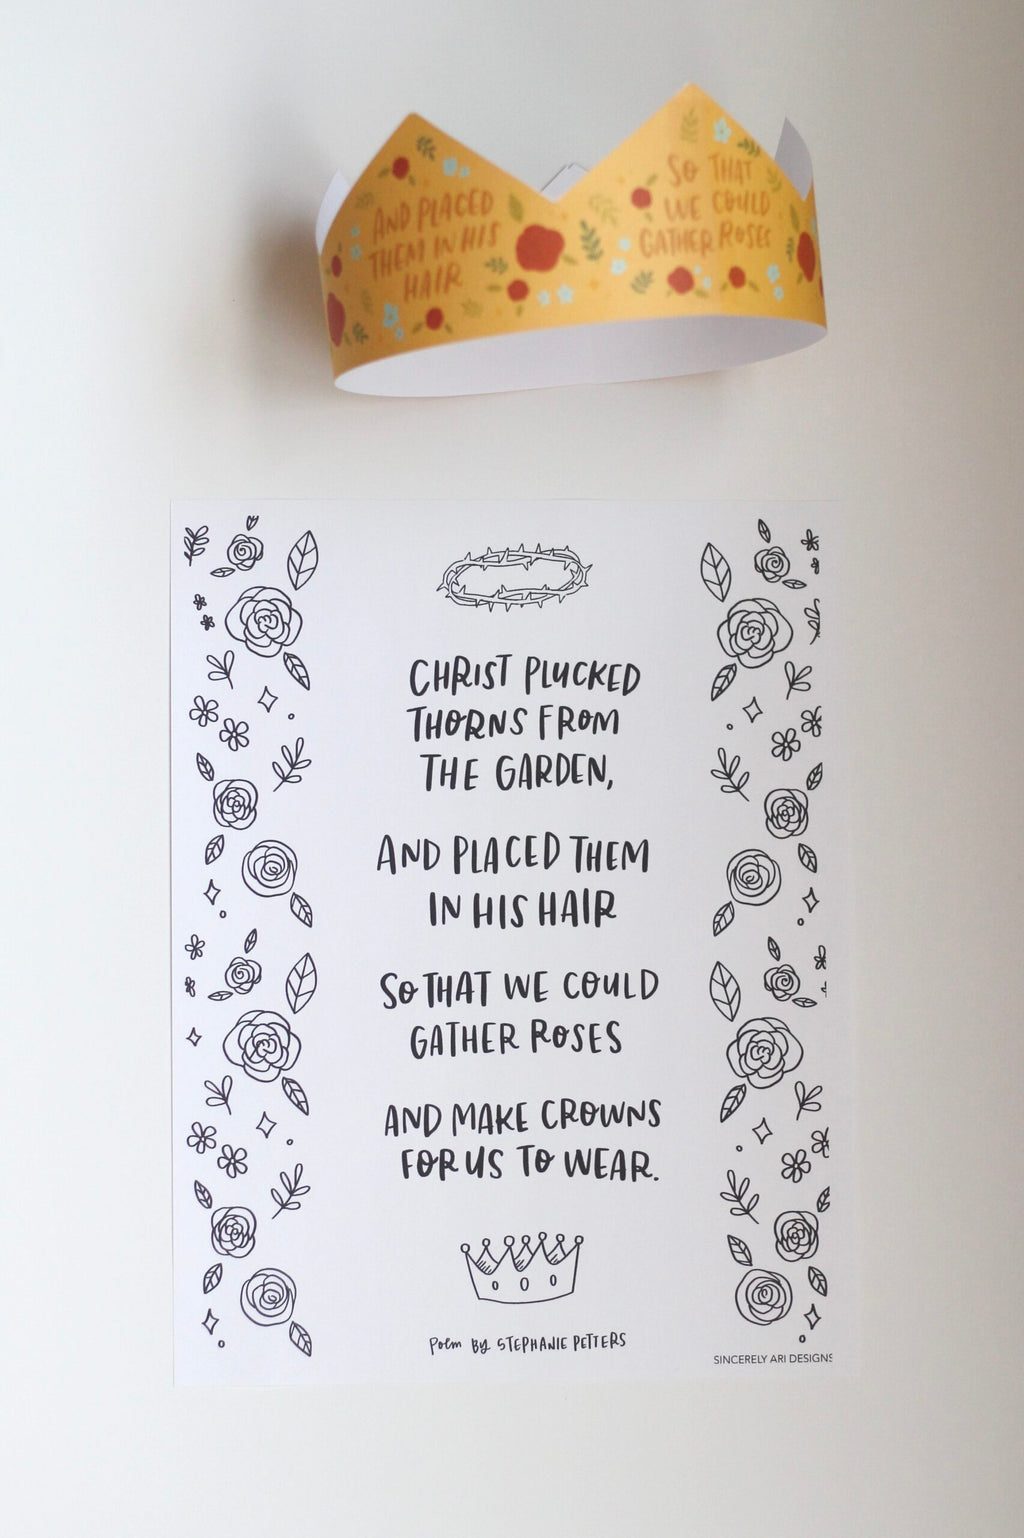 AND PLACED
THEM IN HIS
HAIR
SO THAT
WE COULD
GATHER ROSES
CHRIST PLUCKED
THORNS FROM
THE GARDEN,
AND PLACED THEM
IN HIS HAIR
SO THAT WE COULD
GATHER ROSES
AND MAKE CROWNS
FOR US TO WEAR.
Poem By STEPHANIE PETTERS
SINCERELY ARI DESIGNS